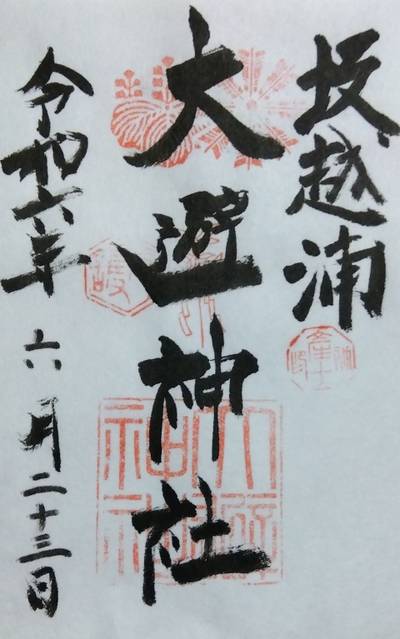 坂越浦
大避神社
令和六年六月二十三日
大避神社